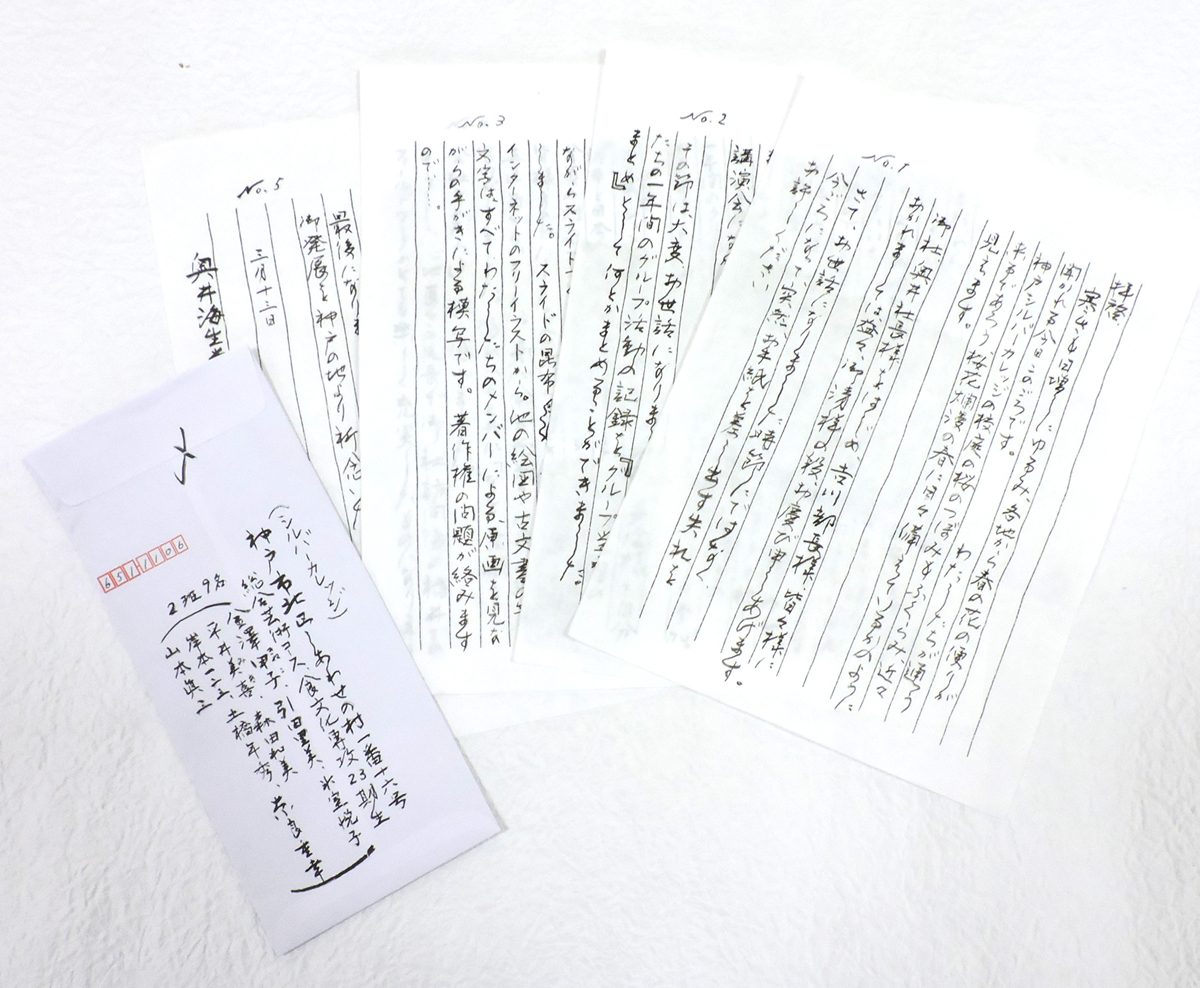 No.1
拝啓
寒さも日増しにゆるみ、各地から春の花の便りが
聞かれる今日このごろです。わたしたちが通う
神戸シルバーカレッジの校庭の桜のつぼみもふくらみ近々
来るであろう、桜花爛漫の春に日々備えているかのように
見えます。
御社奥井社長様をはじめ、吉川部長様、皆々様に
おかれましては、益々御清祥の段、お慶び申しあげます。
さて、お世話になりました時節にではなく
今ごろになって、突然お手紙を差し出す失礼を
お許しください。
No.2
講演会に
その節は大変お世話になりま
たちの一年間のグループ活動の記録を『グループ
まとめ』としてなんとかまとめることができました。
No.3
ながらスライド
しました。スライドの昆布
インターネットのフリーイラストから。他の絵図や古文書の
文字は、すべてわたしたちのメンバーによる、原画を見な
がらの手がきによる模写です。著作権の問題が絡みます
ので……。
No.5
最後になり
御発展を神戸の地より祈念し
三月十三日
奥井海生堂
6511106
(シルバーカレッジ)
神戸市北区しあわせの村一番十六号
総合芸術コース、食文化専攻23期生
2班9名
金澤昭子、引田里美、氷室悦子
平井美喜、森田和美、
岸本一二三、土橋年秀、奈良重幸
山本眞三